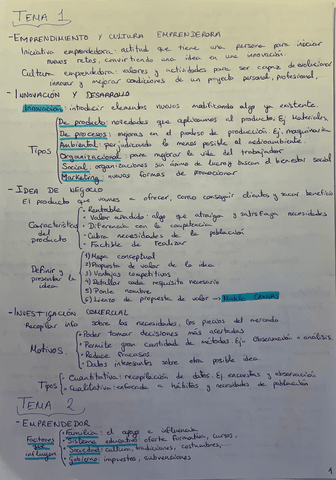 TEMA 1
- EMPRENDIMIENTO Y CULTURA EMPRENDEDORA
Iniciativa emprendedora: actitud que tiene una persona para iniciar
nuevos retos, convirtiendo una idea en una innovación.
Cultura emprendedora: valores y actividades para ser capaz de evolucionar
innovar y mejorar condiciones de un proyecto personal, profesional,
- INNOVACIÓN Y DESARROLLO
Innovación: introducir elementos nuevos modificando algo ya existente.
Tipos
De producto: novedades que aplicamos al producto. Ej: Materiales,
De procesos: mejoras en el proceso de producción. Ej: maquinaria
Ambiental: perjudicando lo menos posible al medioambiente.
Organizacional: para mejorar la vida del trabajador
Social: organizaciones sin ánimo de lucro y buscan el bienestar social
Marketing: nuevas formas de promocionar
- IDEA DE NEGOCIO
El producto que vamos a ofrecer, como conseguir clientes y sacar beneficio
Características del producto
- Rentable
- Valor añadido: algo que atraiga y satisfaga necesidades
- Diferencia con la competencia
- Cubra necesidades de la población
- Factible de realizar
Definir y presentar la idea
1) Mapa conceptual
2) Propuesta de valor de la idea
3) Ventajas competitivas
4) Detallar cada requisito necesario
5) Ponle nombre
6) Lienzo de propuesta de valor → Modelo Canvas
- INVESTIGACIÓN COMERCIAL
Recopilar info sobre las necesidades, los precios del mercado
Motivos
- Poder tomar decisiones más acertadas
- Permite gran cantidad de métodos. Ej: Observación = análisis.
- Reduce fracasos
- Datos interesantes sobre otra posible idea
Tipos
- Cuantitativa: recopilación de datos. Ej: encuestas y observación
- Cualitativa: enfocada a hábitos y necesidades de población
TEMA 2
- EMPRENDEDOR
Factores que influyen
- Familia: el apoyo e influencia
- Sistema educativo: oferta formativa, cursos,
- Sociedad: cultura, tradiciones, costumbres,
- Gobierno: impuestos, subvenciones
1